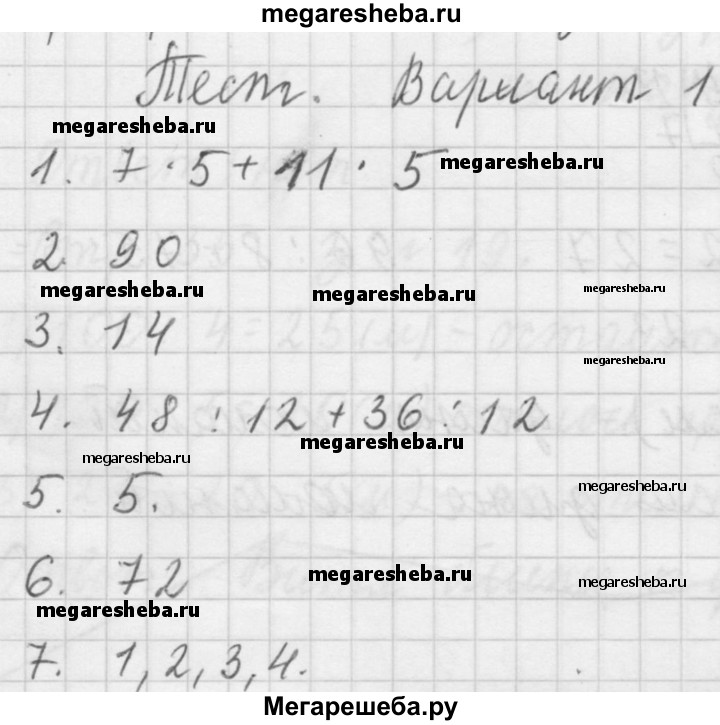 megaresheba.ru
Тест. Вариант 1
megaresheba.ru
1. 7 · 5 + 11 · 5 megaresheba.ru
2. 90
megaresheba.ru megaresheba.ru megaresheba.ru
3. 14
megaresheba.ru
4. 48 : 12 + 36 : 12
megaresheba.ru
megaresheba.ru
5. 5. megaresheba.ru
6. 72 megaresheba.ru megaresheba.ru
megaresheba.ru
7. 1, 2, 3, 4.
Мегарешеба.ру